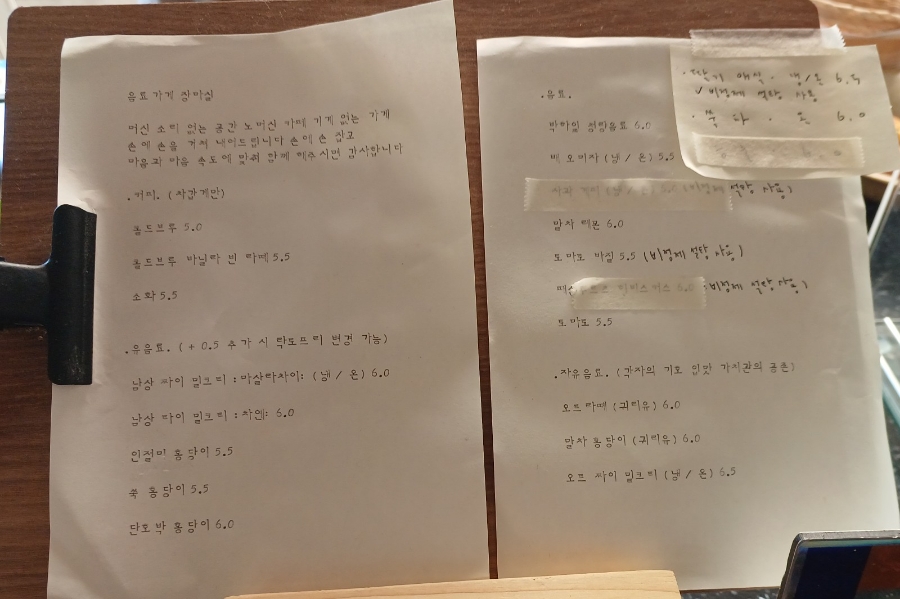 음료 가게 장마실
머신 소리 없는 공간 노머신 카페 기계 없는 가게
손에 손을 거쳐 내어드립니다 손에 손 잡고
마음과 마음 속도에 맞춰 함께 해주시면 감사합니다
.커피. (차갑게만)
콜드브루 5.0
콜드브루 바닐라 빈 라떼 5.5
소화 5.5
.유음료. ( + 0.5 추가 시 락토프리 변경 가능)
남상 짜이 밀크티 : 마살라차이: (냉 / 온) 6.0
남상 타이 밀크티 : 차옌: 6.0
인절미 퐁당이 5.5
쑥 퐁당이 5.5
단호박 퐁당이 6.0
.음료.
박하잎 청탄음료 6.0
배 오미자 (냉 / 온) 5.5
설탕 사용)
말차 레몬 6.0
토마토 마실 5.5 (비정제 설탕 사용)
비정제 설탕 사용)
토마토 5.5
.자유음료. (각자의 기호 입맛 가치관의 공존)
오트라떼 (귀리유) 6.0
말차 퐁당이 (귀리유) 6.0
오트 짜이 밀크티 (냉 / 온) 6.5
· 딸기 매실 · 냉/온 6.5
✓ 비정제 설탕 사용
· 쑥 차 · 온 6.0